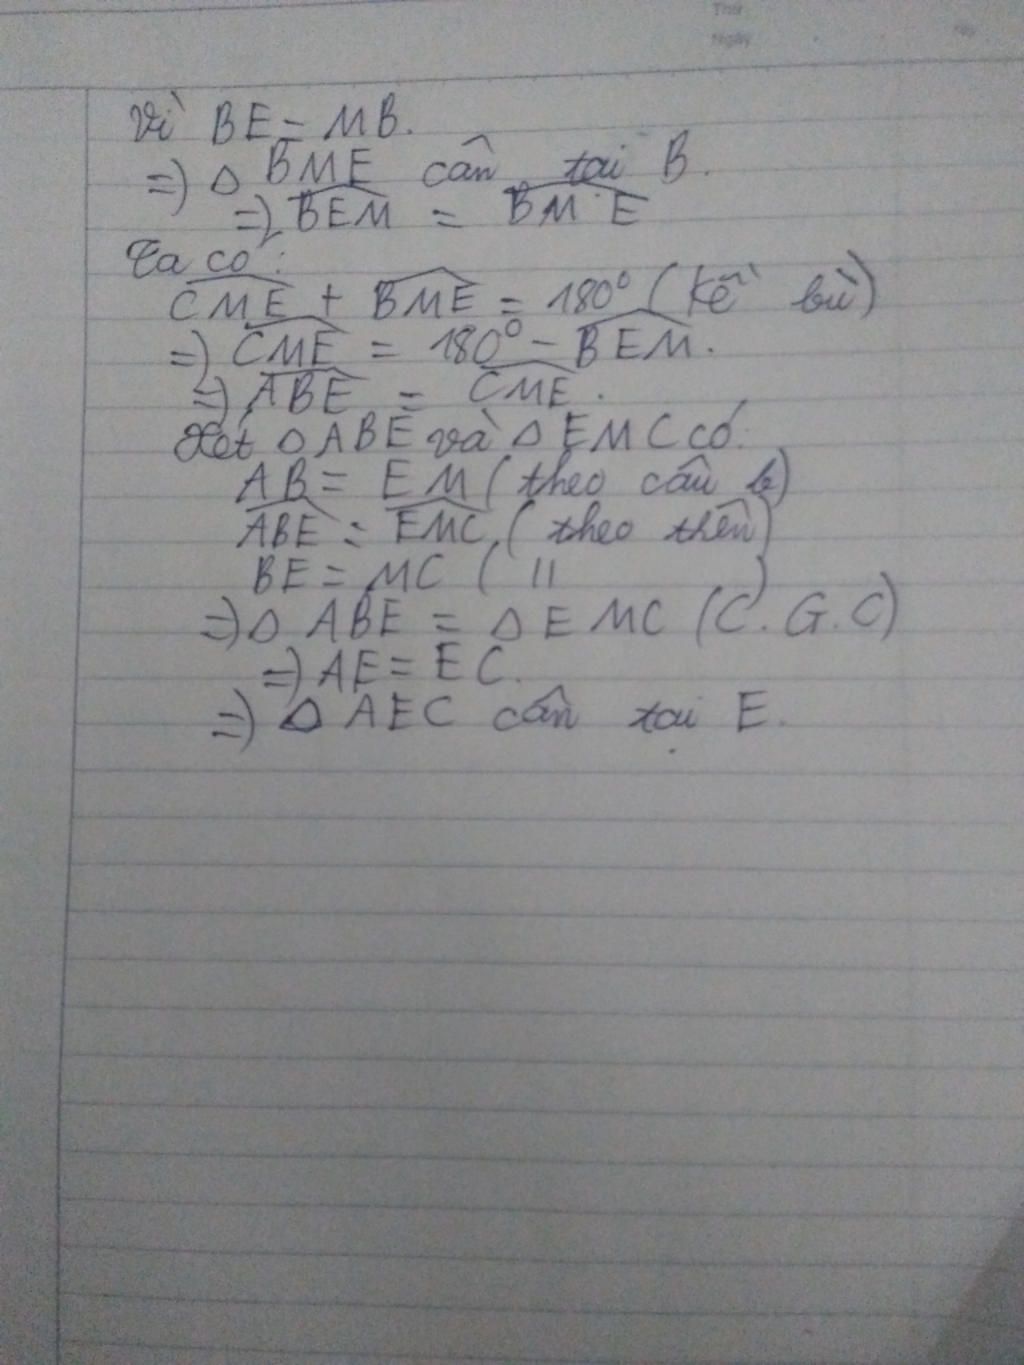 Thứ
Ngày
Vì BE = MB.
=) Δ BME cân tại B.
=) \widehat{BEM} = \widehat{BME}
Ta có:
\widehat{CME} + \widehat{BME} = 180° (kề bù)
=) \widehat{CME} = 180° - \widehat{BEM}.
=) \widehat{ABE} = \widehat{CME}.
Xét Δ ABE và Δ EMC có:
AB = EM (theo câu b)
\widehat{ABE} = \widehat{EMC} (theo trên)
BE = MC ( 11 )
=) Δ ABE = Δ EMC (C.G.C)
=) AE = EC.
=) Δ AEC cân tại E.